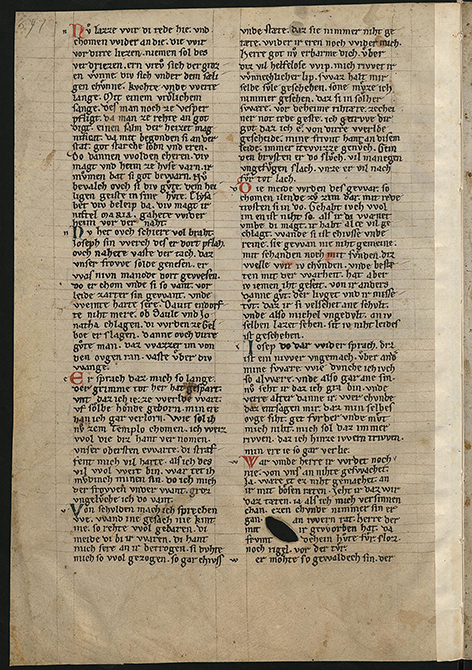 Nv lazze wir di rede hie. vnd
chomen wider an die. die wir
vor dirre liezen. niemen sol des
ver driezen. ern vrev sich der groz
en wnne. div sich vnder dem sæli
gen chvnne. vnde werte
lange. Mit einem vrolichem
sange. des man noch ze vesper
pfligt. da man ze rehte an got
digt. einen salm der heizet mag
nificat. da mit begonden si an der
stat. got starche lobn vnd eren.
do dannen wolden cheren. div
magt vnd heim ze hvse varn.
bat si got bewarn.
bevalch ovch si div gvte. dem hei
ligen geiste in sine hvte. Elysa
bet div beleip da. div magt ir
niftel MARIA. gahete wider
heim vor der naht.
Nv het ovch sehzeu vol braht
Joseph sin werch des er dort pflach.
ovch nahete vaste der tach. daz
vnser frowe solde genesen. er
was nivn manode dort gewesen.
do er chom vnde si so vant. vor
leide zarter sin gewant. vnde
weinte harte sere. Dauit endorf
te niht mere. ob Saule vnd Jo
natha chlagen. di wrden ze Gel
boe er slagen. danne ovch dirre
gvte man. daz wazzer im von
den ovgen ran. vaste vber div
wange.
Er sprach daz mich so lange.
der grimme tot her hat gespart.
daz ich ie ze werlde wart.
vf solhe sorige min ere
han ich gar verlorn. wie sol ich
nv zem templo chomen. ich weiz
wol die diz hant ver nomen.
vnser obersten ewarte. di straf
fent mich vil harte. als ich des
vil wol wert bin. war tet ich
mvdinch minen sin. do ich mich
der frowen vnder want. groz
vngelvche ich do vant.
Von schvlden mach ich sprechen
we. wand ine gesach nie kint
me. so rehte wol gebaren. di
meide di bi ir waren. di hant
mich sere an ir betrogen. si dvhte
mich so wol gezogen. so gar chvsc
vnde stæte. daz sie nimmer niht ge
tæte. wider ir eren noch wider mich.
herre got nv erbarme dich. vber
diz vil helfelose wip. mich riwet ir
wnnechlicher lip. swar halt mir
selbe sole geschehen. sone mvze ich
nimmer gesehen. daz si in solher
swære. vor deheime rihtære. rechei
ner not rede geste. ich getrwe dir
got daz ich e. von dirre werlde
gescheide. mine frivnt hant an disem
leide. immer itewizze gewich. Gein
den brvsten er do slvch. vil manegen
vngefvgen slach. vnze er vil nach
fvr tot lach.
Die meide wrden des gewar. so
chomen ilende dar. mit rede
trosten si in do. Gehabt iwch wol
im en ist niht so. als ir da wænet
vnde di magt. ir habt al ze vil ge
chlagt. wande si ist chvsche vnde
reine. sie gewan nie niht gemeine.
mit schanden noch mit svnden. diz
welle wir iv chvnden. vnde beste
ten mit der warheit. hat aber
iv iemen iht geseit. von ir anders
danne gvt. der livget vnd ir misse
tvt. daz ir si velschet ane schvlt.
vnde also michel vngedvlt. an iv
selben lazet sehen. sit iv niht leides
ist geschehen.
Josep do dar wider sprach. diz
ist ein niwer vngemach. vber andr
mine swære. wie dvnche ich iwch
so alwære. vnde also gar ane sin.
nv seht ir daz ich gra bin. vnde
verre alter danne ir. wer chonde
daz entsagen mir. daz min selbes
ovge siht. get fvrder vnde mvt
mich niht. mich sol daz immer
riwen. daz ich hinze iwern triwen.
min ere ie so gar verlie.
War vmbe herre ir redet noch
nie. von vns an nihte geswachet.
ia wære er niht gemachet. an
ir mit bosen tæten. seht ir daz wir
daz tæten. ia als ich mich versinnen
chan. ezen chvnde nimmer sin er
gan. an iwern rat. herre der
mit ir geworben hat. da
frvmt dehein hvte fvr. sloz
noch rigel vor der tvr.
er mohte so gewaldech sin. der